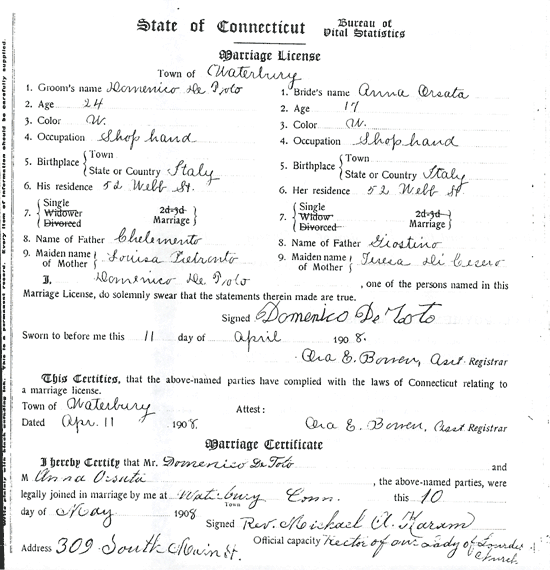 State of Connecticut Bureau of Vital Statistics
Marriage License
Town of Waterbury
1. Groom's name Domenico De Toto 1. Bride's name Anna Orsuta
2. Age 24 2. Age 17
3. Color W. 3. Color W.
4. Occupation Shop hand 4. Occupation Shop hand
5. Birthplace { Town 5. Birthplace { Town
State or Country Italy State or Country Italy
6. His residence 52 Webb St. 6. Her residence 52 Webb St.
7. { Single 7. { Single
Widower 2d-3d Widow 2d-3d
Divorced Marriage } Divorced Marriage }
8. Name of Father Chelemento 8. Name of Father Giostino
9. Maiden name of Mother } Louisa 9. Maiden name of Mother } Teresa Di Cesero
I, Domenico De Toto, one of the persons named in this
Marriage License, do solemnly swear that the statements therein made are true.
Signed Domenico De Toto
Sworn to before me this 11 day of April 1908.
Ora E. Bowen, Asst Registrar
This Certifies, that the above-named parties have complied with the laws of Connecticut relating to
a marriage license.
Town of Waterbury Attest:
Dated Apr. 11 1908. Ora E. Bowen, Asst Registrar
Marriage Certificate
I hereby Certify that Mr. Domenico De Toto and
M Anna Orsuta, the above-named parties, were
legally joined in marriage by me at Waterbury Conn. this 10
Town
day of May 1908
Signed Rev. Michael A. Karam
Address 309 South Main St. Official capacity Rector of our Lady of Lourdes Church